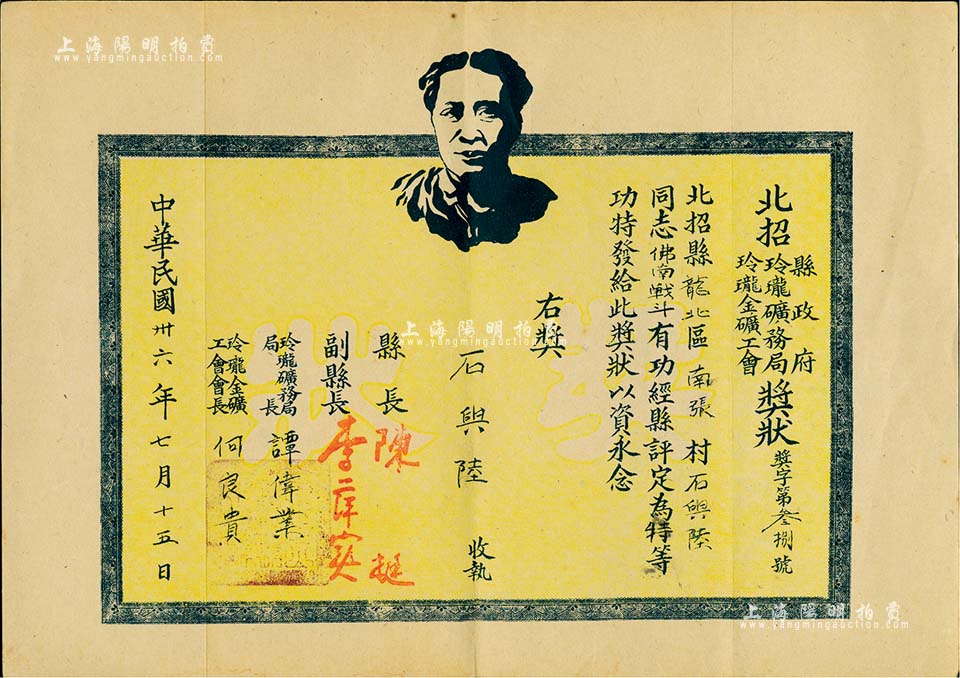 上海陽明拍賣
www.yangmingauction.com
北招縣政府
玲瓏礦務局
玲瓏金礦工會
獎狀
獎字第叁捌號
北招縣龍北區南張村石與陸
同志佛南戰斗有功經縣評定為特等
功特發給此獎狀以資永念
右獎
石與陸 收執
縣長 陳挺
副縣長 李
玲瓏礦務局
局長 譚偉業
玲瓏金礦
工會會長 何良貴
中華民國卅六年七月十五日
獎狀
上海陽明拍賣
www.yangmingauction.com
上海陽明拍賣
www.yangmingauction.com